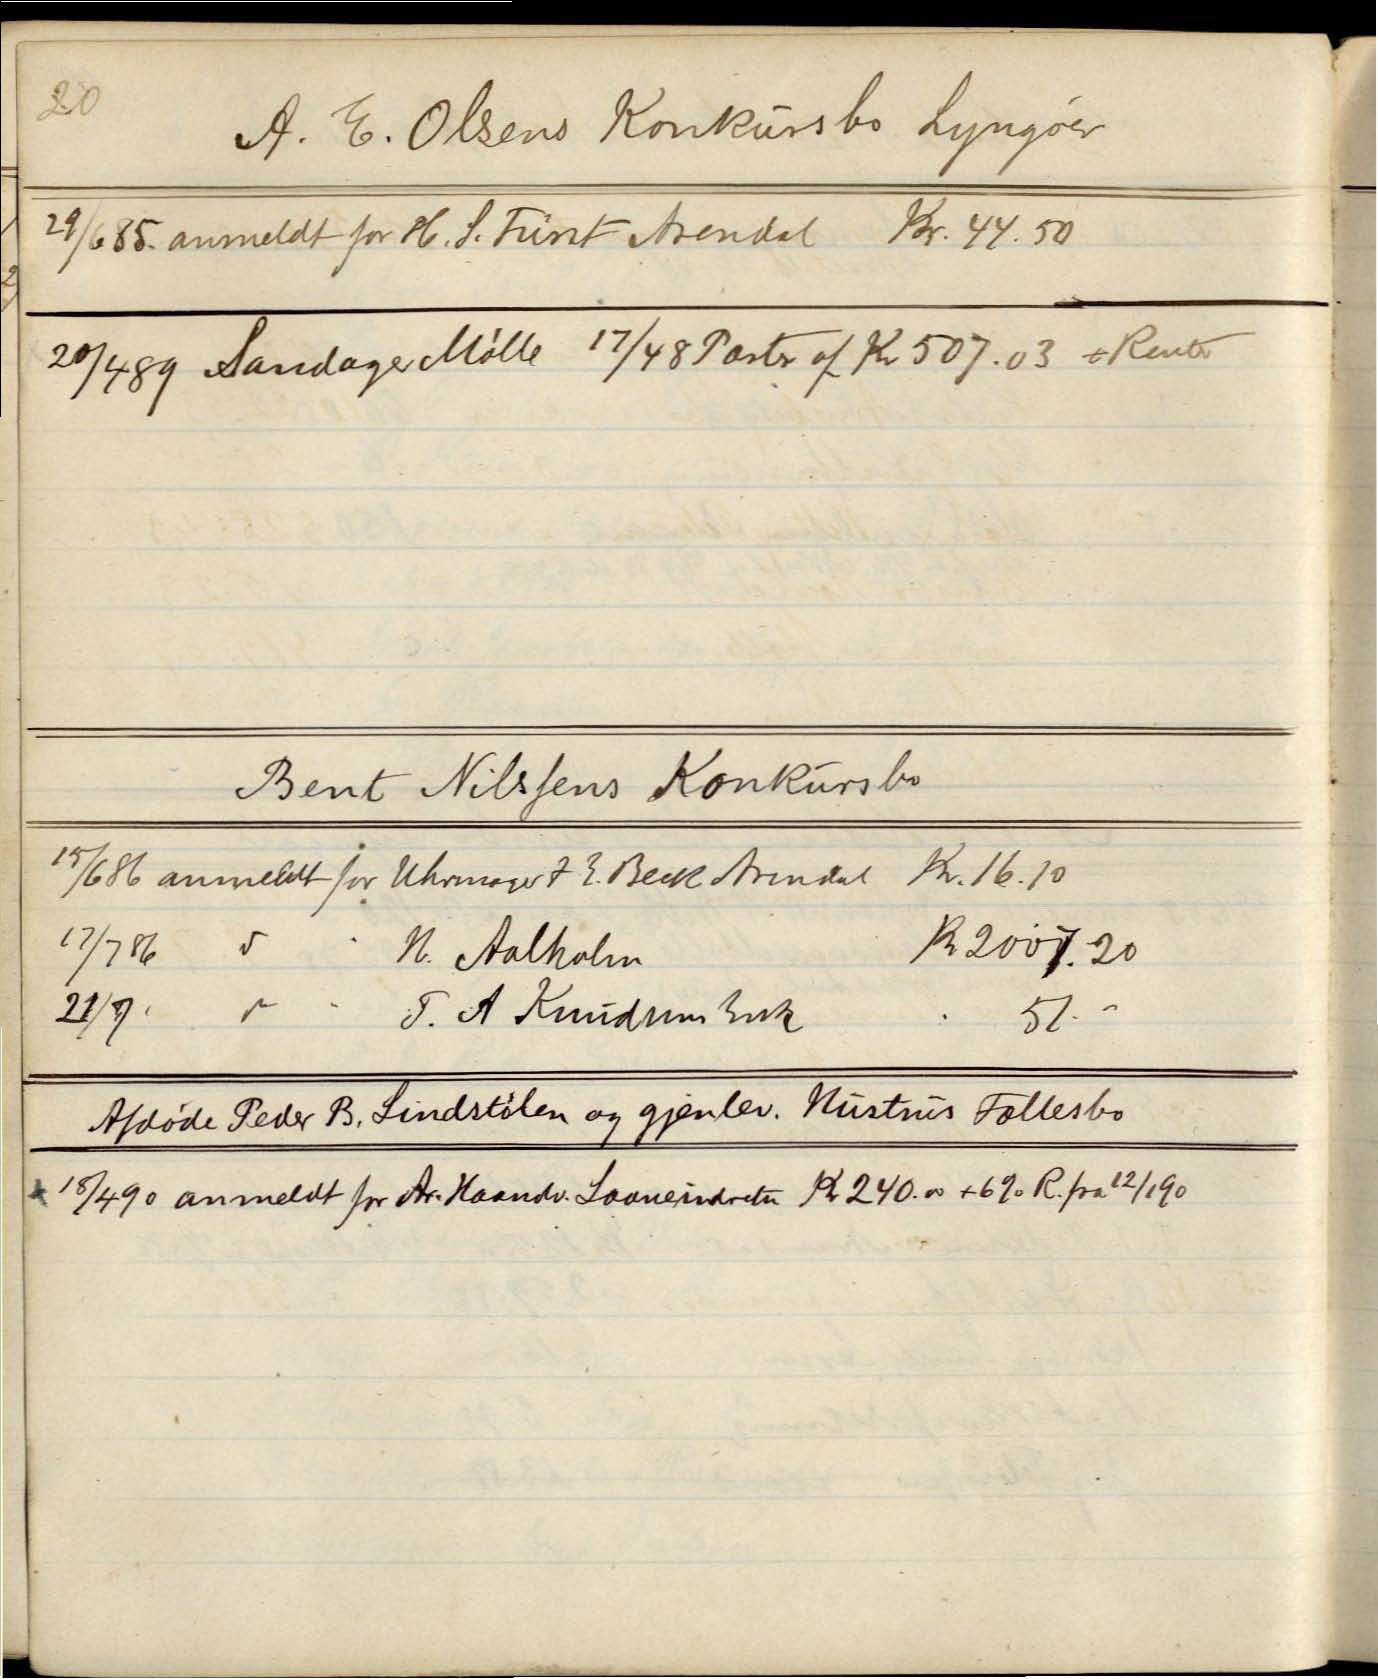 20
A. E. Olsens Konkursbo Lyngøer
29/6 85. anmeldt for H. S. Fürst Arendal Kr. 44.50
20/4 89 Sandager Mølle 17/48 Parter af Kr 507.03 + Renter
Bent Nilssens Konkursbo
15/6 86 anmeldt for Uhrmager F E. Beck Arendal Kr. 16.10
17/7 86 d " N. Aalholm Kr 2007.20
21/7 " d " T. A Knudsens Enke " 51. -
Afdøde Peder B. Lindstølen og gjenlev. Hustrus Fællesbo
x 18/4 90 anmeldt for Ar. Haandv. Laaneindretn Kr 240.00 + 6% R. fra 12/1 90